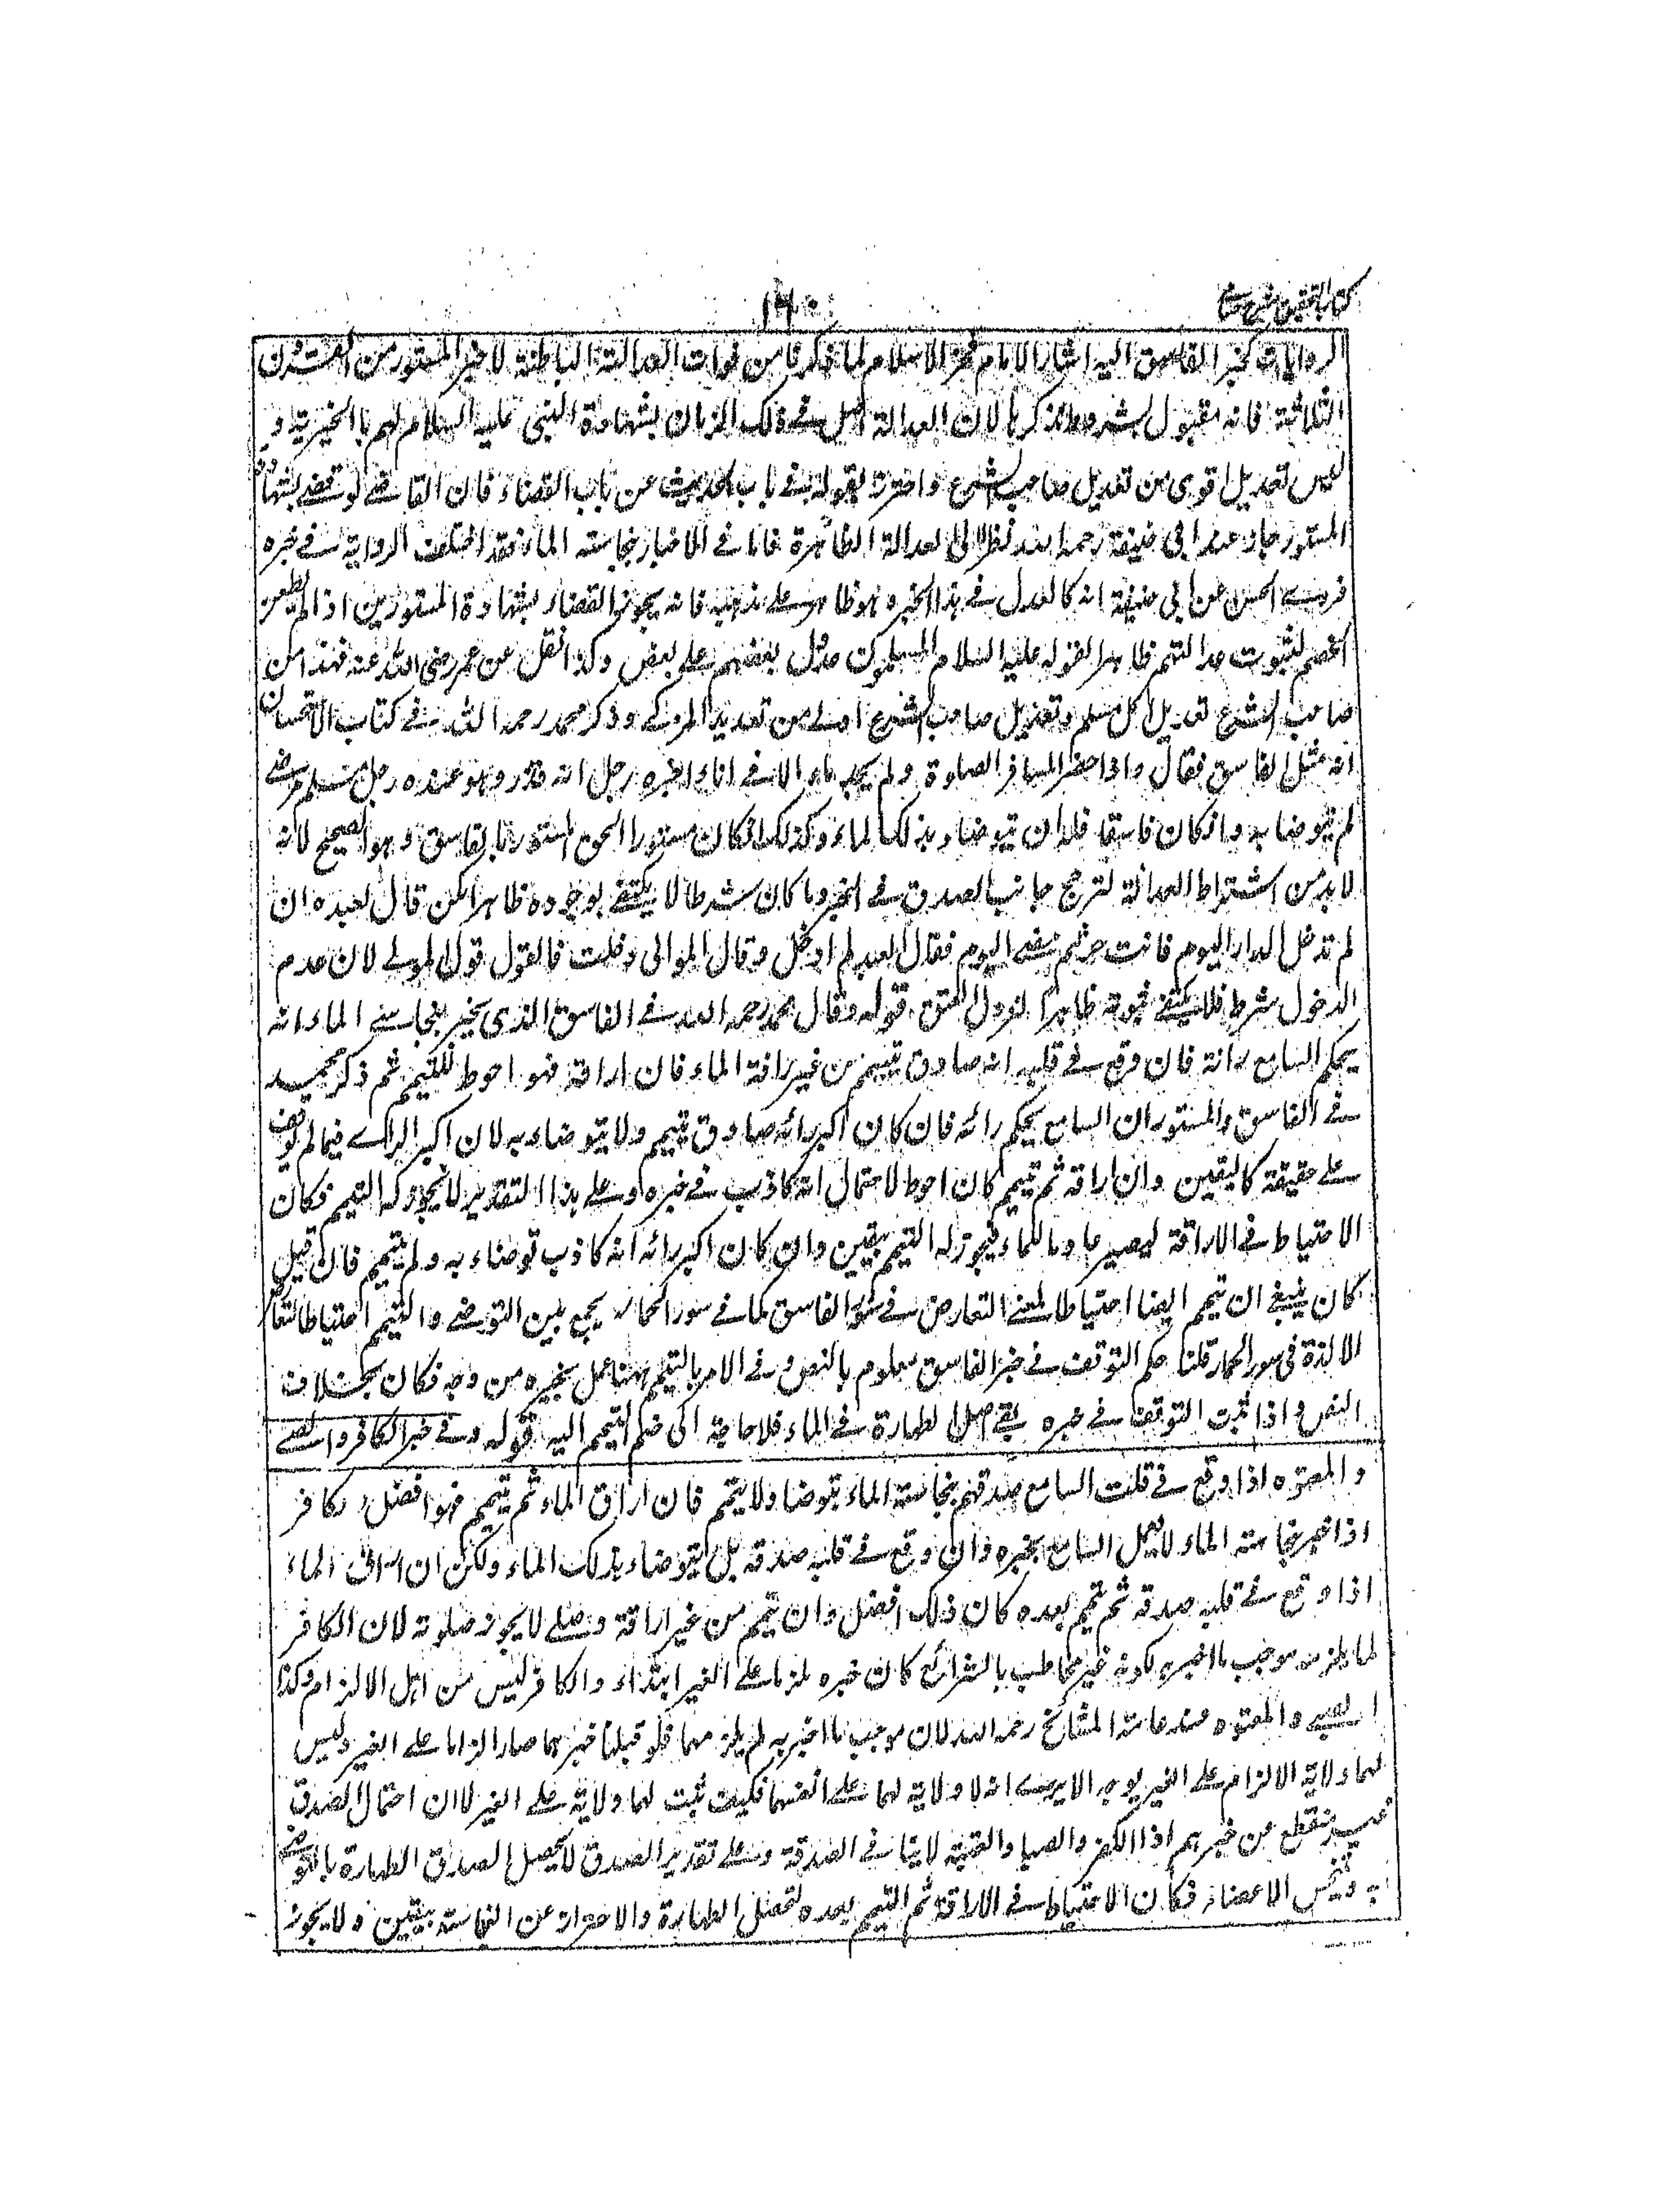 كتاب التحقيق شرح حسامي
١٦٠
الروايات كخبر الفاسق اليه اشار الامام فخر الاسلام لما ذكرنا من فوات العدالة الباطنة لا خبر المستور من القرون
الثلاثة فانه مقبول بشروط نذكرها لان العدالة اصل في ذلك الزمان بشهادة النبي عليه السلام لهم بالخيرية و
ليس تعديل اقوى من تعديل صاحب الشرع واحترز بقوله في باب الحديث عن باب القضاء فان القاضي لو قضى بشهادة
المستور جاز عند ابي حنيفة رحمه الله نظرا الى العدالة الظاهرة فاما في الاخبار بنجاسة الماء فقد اختلفت الرواية في خبره
فروى الحسن عن ابي حنيفة انه كالعدل في هذا الخبر وهو ظاهر على مذهبه فانه يجوز القضاء بشهادة المستورين اذا لم يطعن
الخصم لثبوت عدالتهم ظاهرا لقوله عليه السلام المسلمون عدول بعضهم على بعض وكذا نقل عن عمر رضي الله عنه فهذا من
صاحب الشرع تعديل لكل مسلم وتعديل صاحب الشرع اولى من تعديل المزكى وذكر محمد رحمه الله في كتاب الاستحسان
انه مثل الفاسق فقال واذا حضر المسافر الصلوة ولم يجد ماء الا في اناء اخبره رجل انه قذر وهو عنده رجل مسلم مرضي
لم يتوضا به وان كان فاسقا فله ان يتوضاء بذلك الماء وكذلك اذا كان مستورا الحق المستور بالفاسق وهو الصحيح لانه
لا بد من اشتراط العدالة لترجح جانب الصدق في الخبر وما كان شرطا لا يكتفى بوجوده ظاهرا كمن قال لعبده ان
لم تدخل الدار اليوم فانت حر ثم مضى اليوم فقال العبد لم ادخل وقال المولى دخلت فالقول قول المولى لان عدم
الدخول شرط فلا يكتفى ثبوته ظاهرا لنزول العتق قوله وقال محمد رحمه الله في الفاسق الذي يخبر بنجاسة الماء انه
يحكم السامع رائه فان وقع في قلبه انه صادق تيمم من غير اراقة الماء فان اراقه فهو احوط للتيمم ثم ذكر محمد
في الفاسق والمستور ان السامع يحكم رائه فان كان اكبر رائه صادق تيمم ولا يتوضاء به لان اكبر الراى فيما لم يوقف
على حقيقة كاليقين وان اراقه ثم تيمم كان احوط لاحتمال انه كاذب في خبره وعلى هذا التقدير لا يجوز له التيمم فكان
الاحتياط في الاراقة ليصير عادما للماء فيجوز له التيمم بيقين وان كان اكبر رائه انه كاذب توضاء به ولم يتيمم فان قيل
كان ينبغي ان تيمم ايضا احتياطا لمعنى التعارض في خبر الفاسق كما في سور الحمار يجمع بين التوضي والتيمم احتياطا لتعارض
الادلة في سور الحمار قلنا حكم التوقف في خبر الفاسق معلوم بالنص وفي الامر بالتيمم ههنا عمل بخبره من وجه فكان بخلاف
النص واذا ثبت التوقف في خبره بقي اصل الطهارة في الماء فلا حاجة الى ضم التيمم اليه قوله وفي خبر الكافر والصبي
والمعتوه اذا وقع في قلب السامع صدقهم بنجاسة الماء يتوضا ولا يتيمم فان اراق الماء ثم تيمم فهو افضل الكافر
اذا اخبر بنجاسة الماء لا يعمل السامع بخبره وان وقع في قلبه صدقه بل يتوضاء بذلك الماء ولكن ان اراق الماء
اذا وقع في قلبه صدقه ثم تيمم بعده كان ذلك افضل وان تيمم من غير اراقة وصلى لا يجوز صلوته لان الكافر
لما يلزمه موجب ما اخبر به لكونه غير مخاطب بالشرائع كان خبره ملزما على الغير ابتداء والكافر ليس من اهل الالزام وكذا
الصبي والمعتوه عند عامة المشائخ رحمه الله لان موجب ما اخبر به لم يلزمهما فلو قبلنا خبرهما صار الزاما على الغير وليس
لهما ولاية الالزام على الغير بوجه الا يرى انه لا ولاية لهما على انفسهما فكيف تثبت لهما ولاية على الغير الا ان احتمال الصدق
غير منقطع عن خبرهم اذا الكفر والصبا والعته لا ينافي الصدقة وعلى تقدير الصدق لا يحصل الصدق الطهارة بالتوضي
به وتنجس الاعضاء فكان الاحتياط في الاراقة ثم التيمم بعده لتحصل الطهارة والاحتراز عن النجاسة بيقين ولا يجوز